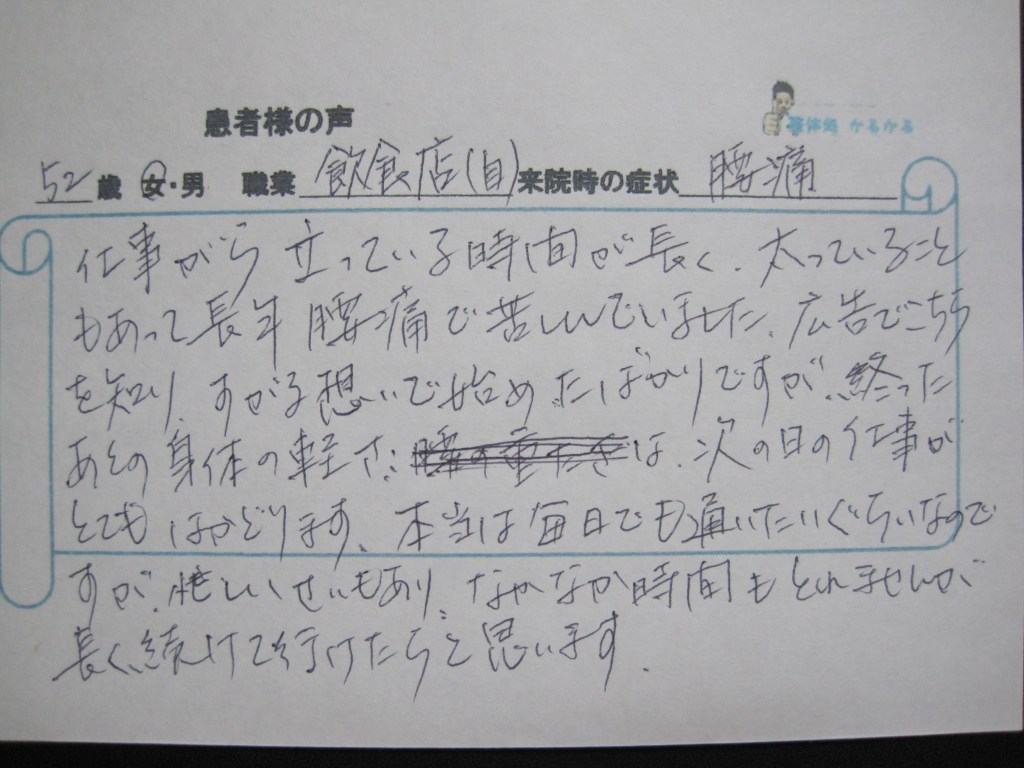 患者様の声
整体処 かるかる
52歳 女・男 職業 飲食店(自) 来院時の症状 腰痛
仕事がら 立っている時間が長く、太っていること
もあって長年 腰痛で苦しんでいました。広告でこちら
を知り、すがる想いで始めたばかりですが、終った
あとの身体の軽さ、は、次の日の仕事が
とてもはかどります。本当は毎日でも通いたいぐらいなので
すが、忙しいせいもあり、なかなか時間もとれませんが
長く、続けて行けたらと思います。